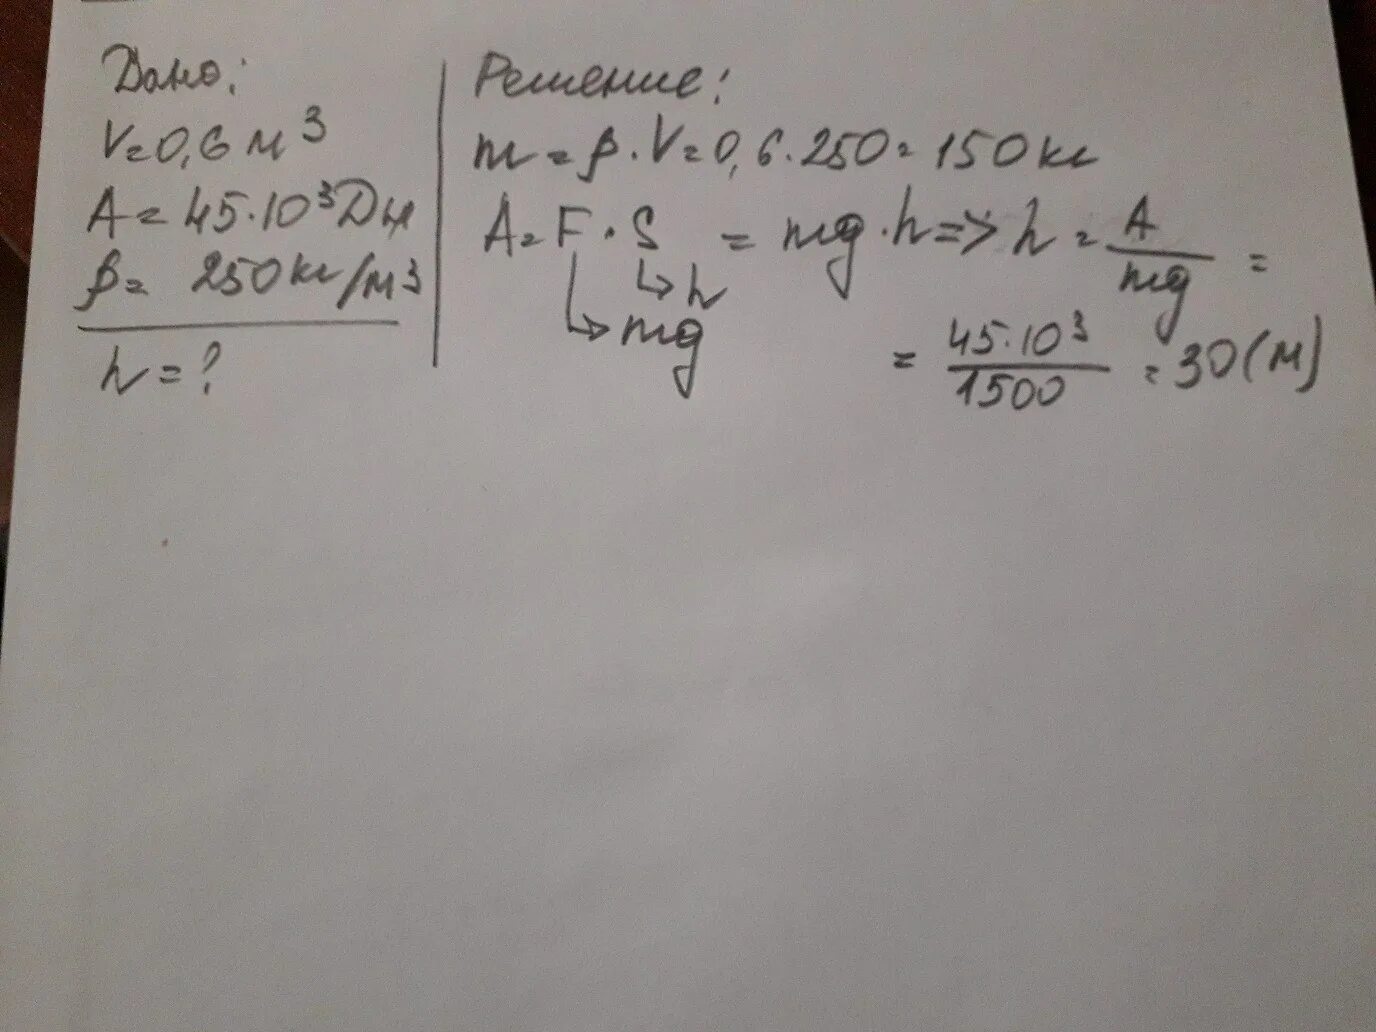 Дано:
V=0,6 м³
A=45·10³Дж
ρ= 250кг/м³
h=?
Решение:
m=ρ·V=0,6·250=150кг
A=F·S = mg·h=>h=A/mg =
h
mg
= 45·10³/1500 =30(м)